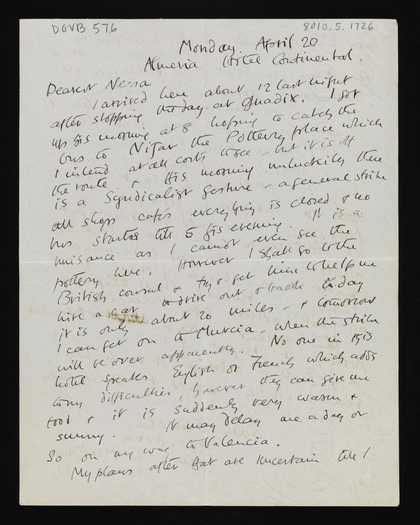 DGVB.576 8010.5.1726
Monday. April 20
Almeria Hotel Continental.
Dearest Nessa
I arrived here about 12 last night
after stopping the day at Guadix. I got
up this morning at 8 hoping to catch the
bus to Nijar the Pottery place which
I intend at all costs to see – but it is off
the route & this morning unluckily there
is a Syndicalist gesture – a general strike
all shops cafes everything is closed & no
bus starts till 5 this evening. It is a
nuisance as I cannot even see the
pottery here. However I shall go to the
British consul & try & get him to help me
hire a car & drive out & back today
it is only about 20 miles – & tomorrow
I can get on to Murcia, when the strike
will be over apparently. No one in this
hotel speaks English or French which adds
to my difficulties, however they can give me
food & it is suddenly very warm &
sunny. It may delay me a day or
so on my way to Valencia.
My plans after that are uncertain till I